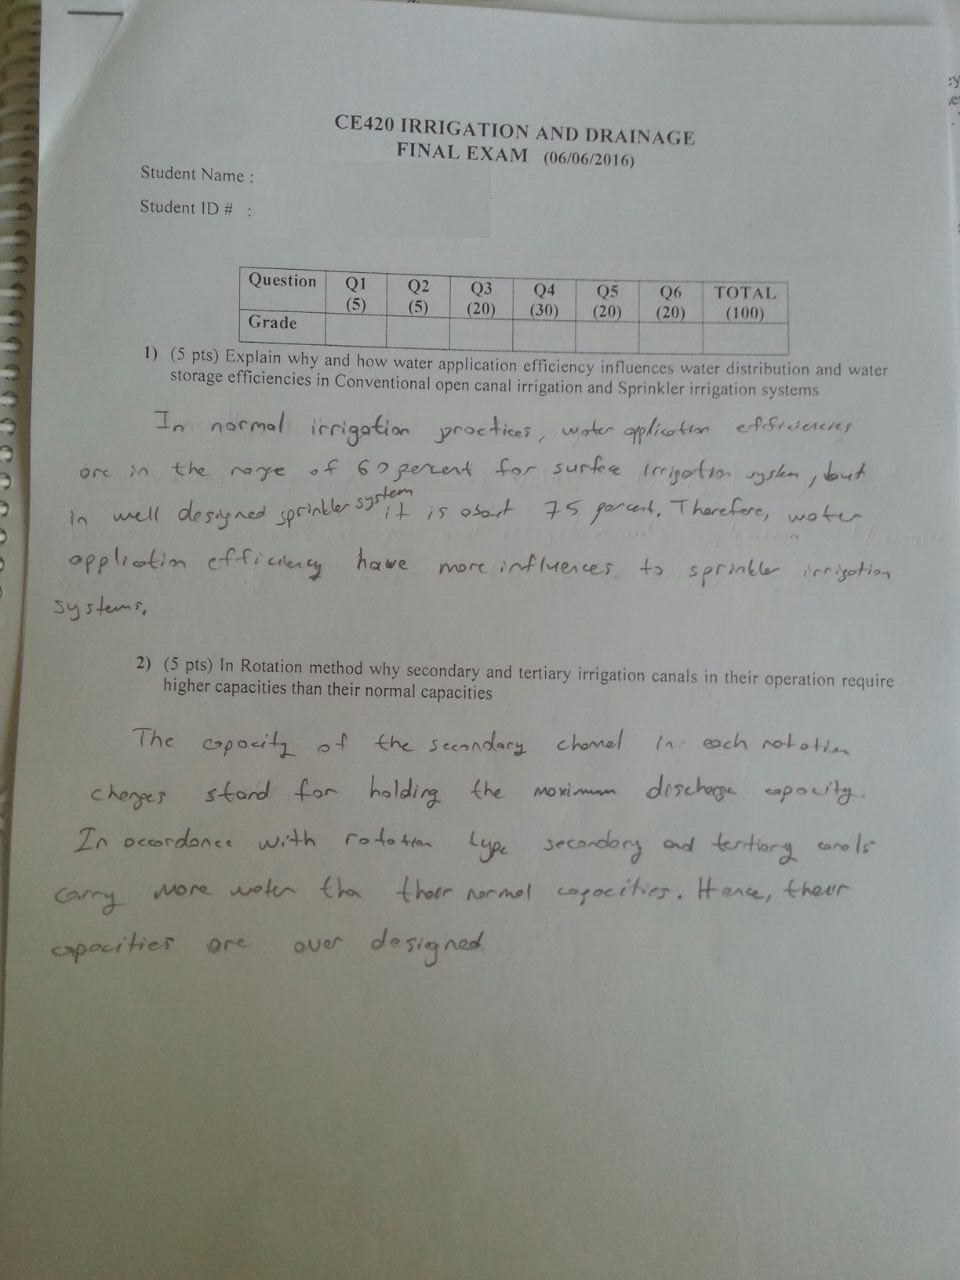 CE420 IRRIGATION AND DRAINAGE
FINAL EXAM (06/06/2016)
Student Name :
Student ID # :
Question Q1 (5) Q2 (5) Q3 (20) Q4 (30) Q5 (20) Q6 (20) TOTAL (100)
Grade
1) (5 pts) Explain why and how water application efficiency influences water distribution and water
storage efficiencies in Conventional open canal irrigation and Sprinkler irrigation systems
In normal irrigation practices, water application efficiencies
are in the range of 60 percent for surface irrigation system, but
in well designed sprinkler system it is about 75 percent. Therefore, water
application efficiency have more influences to sprinkler irrigation
systems.
2) (5 pts) In Rotation method why secondary and tertiary irrigation canals in their operation require
higher capacities than their normal capacities
The capacity of the secondary channel in each rotation
changes stand for holding the maximum discharge capacity.
In accordance with rotation type secondary and tertiary canals
carry more water than their normal capacities. Hence, their
capacities are over designed.